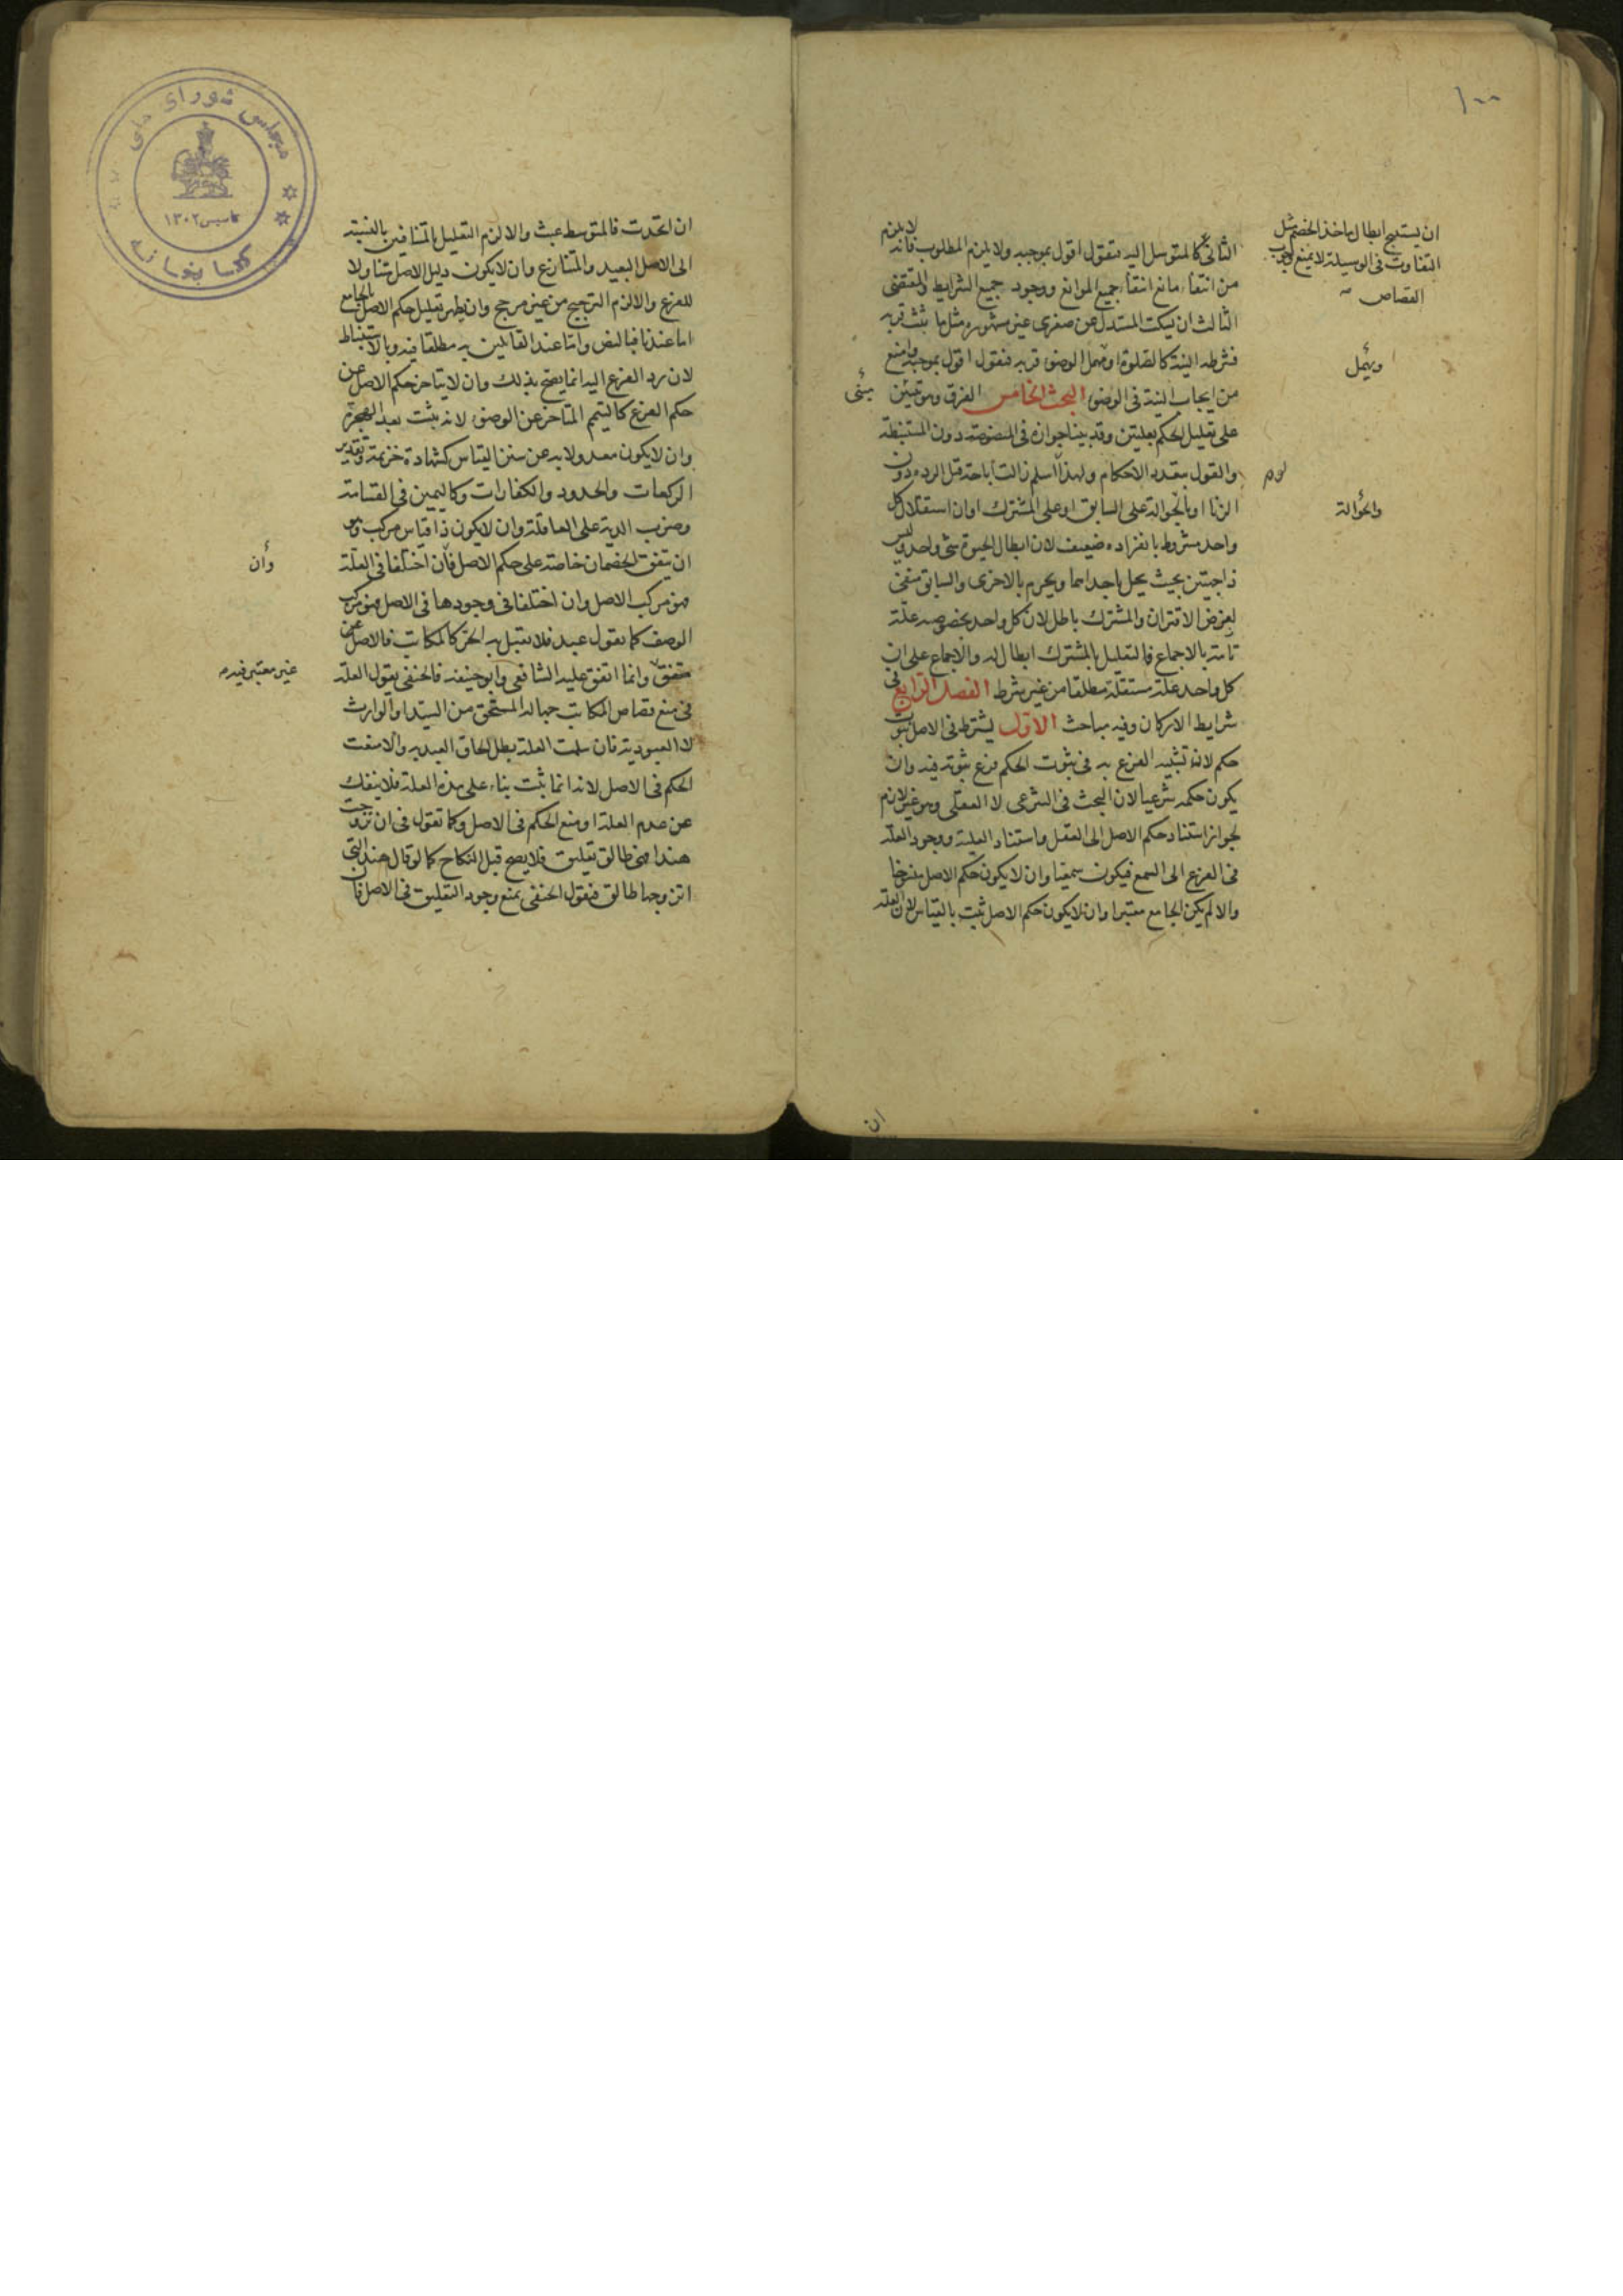 ١٠٠
ان يستنتج ابطال ماخذ الخصم مثل
التفاوت فى الوسيلة لا يمنع
القصاص
الثانى كالمتوسل اليه فنقول اقول بموجبه ولا يلزم المطلوب فانه لا يلزم
من انتفاء مانع انتفاء جميع الموانع ووجود جميع الشرايط والمقتضى
الثالث ان يسكت المستدل عن صغرى غير مشهوره مثل ما ثبت قربه
فشرطه النية كالصلوة او يهمل الوضوء قربه فنقول اقول بموجبه وامنع
ويهمل
من ايجاب النية فى الوضوء البحث الخامس الفرق وهو
على تعليل الحكم بعلتين وقد بينا جوازه فى المنصوصة دون المستنبطة
والقول بتعدد الاحكام ولهذا اسلم زالت اباحة قتل الردة دون
الزنا او بالحوالة على السابق او على المشترك او ان استقلال كل
والحوالة
واحد مشروط بانفراده ضعيف لان ابطال الحيوة شئ واحد وليس
ذا جهتين بحيث يحل باحداهما ويحرم بالاخرى والسابق منفى
لفرض الاقتران والمشترك باطل لان كل واحد بخصوصه علة
تامة بالاجماع فالتعليل بالمشترك ابطال له والاجماع على ان
كل واحد علة مستقلة مطلقا من غير شرط الفصل الرابع فى
شرايط الاركان وفيه مباحث الاول يشترط فى الاصل ثبوت
حكم لانه تشبيه الفرع به فى ثبوت الحكم فرع ثبوته فيه وان
يكون حكمه شرعيا لان البحث فى الشرعى لا العقلى وهو غير لازم
لجواز استناد حكم الاصل الى العقل واستناد العلية ووجود العلة
فى الفرع الى السمع فيكون سمعيا وان لا يكون حكم الاصل منسوخا
والا لم يكن الجامع معتبرا وان لا يكون حكم الاصل ثبت بالقياس لان العلة
ان
ان اتحدت فالمتوسط عبث والا لزم التعليل بالمتنافين بالنسبة
الى الاصل البعيد والمتنازع وان لا يكون دليل الاصل متناولا
للفرع والا لزم الترجيح من غير مرجح وان يظهر تعليل حكم الاصل بالجامع
اما عندنا فبالنص واما عند القائلين به مطلقا فبه وبالاستنباط
لان رد الفرع اليه انما يصح بذلك وان لا يتاخر حكم الاصل عن
حكم الفرع كالتيمم المتاخر عن الوضوء لانه يثبت بعد الهجرة
وان لا يكون معدولا به عن سنن القياس كشهادة خزيمة وتقدير
الركعات والحدود والكفارات وكاليمين فى القسامة
وضرب الدية على العاقلة وان لا يكون ذا قياس مركب وهو
ان يتفق الخصمان خاصة على حكم الاصل فان اختلفا فى العلة
وان
فهو مركب الاصل وان اختلفا فى وجودها فى الاصل فهو مركب
الوصف كما نقول عبد فلا يقتل به الحر كالمكاتب فالاصل غير
متفق وانما اتفق عليه الشافعى وابو حنيفه فالحنفى يقول العلة
غير معتبر فيه
فى منع قصاص المكاتب جهالة المستحق من السيد او الوارث
لا العبودية فان سلمت العلة بطل الحاق العبد به والا منعت
الحكم فى الاصل لانه انما ثبت بناء على هذه العلة فلا ينفك
عن عدم العلة او منع الحكم فى الاصل وكما تقول فى ان تزوجت
هندا فهى طالق تعليق فلا يصح قبل النكاح كما لو قال هند التى
اتزوجها طالق فنقول الحنفى يمنع وجود التعليق فى الاصل فان
مجلس شوراى ملى
تاسيس ١٣٠٢
كتابخانه